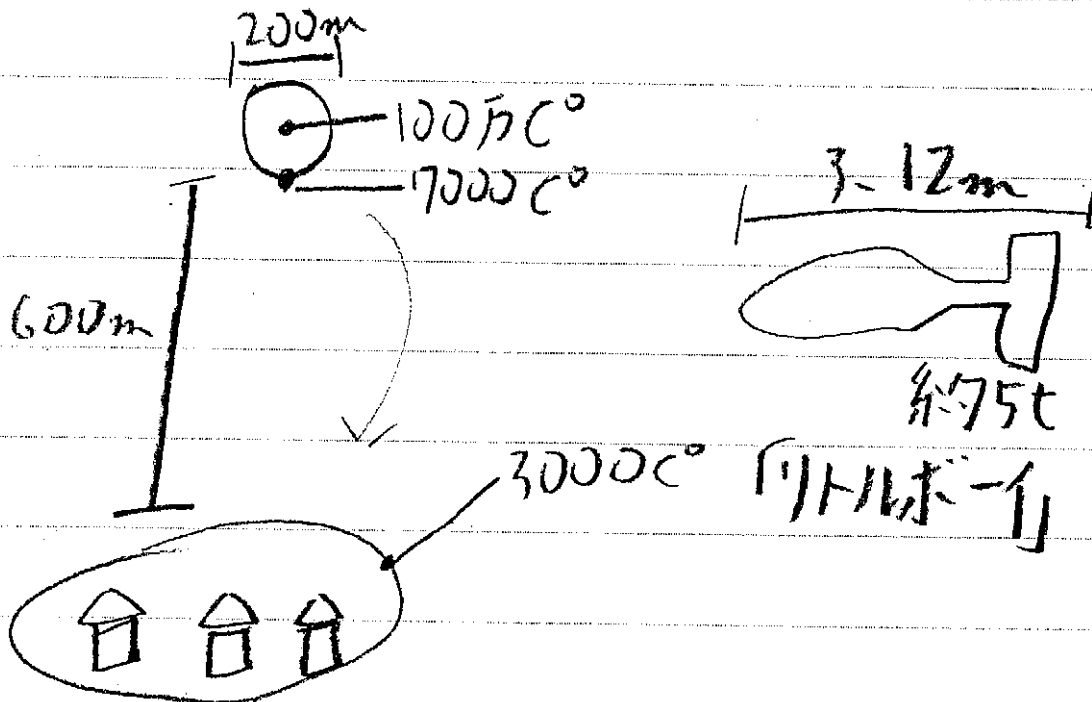 200m
100万C°
7000C°
600m
3000C°
3.12m
約5t
「リトルボーイ」